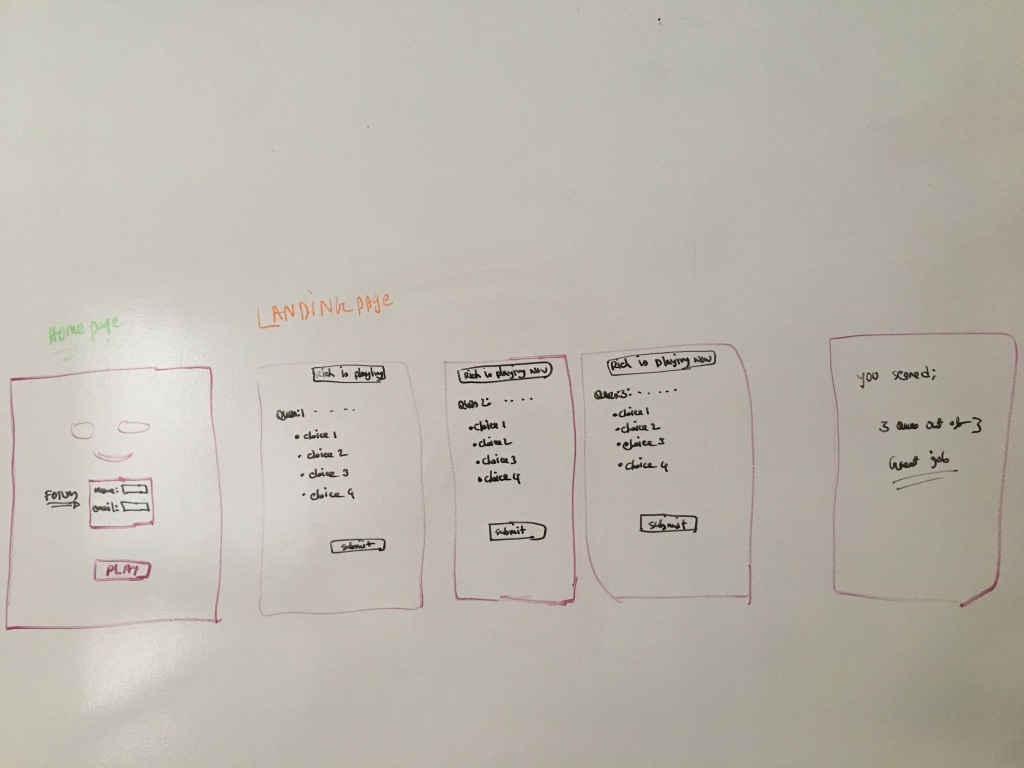 Home page
LANDING PAGE
Form
Name:
email:
PLAY
Rich is playing
Ques:1 - - - -
• choice 1
• choice 2
• choice 3
• choice 4
submit
Rich is playing now
Ques 2: - - - -
• choice 1
• choice 2
• choice 3
• choice 4
submit
Rich is playing now
Ques 3: - - - - - -
• choice 1
• choice 2
• choice 3
• choice 4
submit
you scored;
3 Ques out of 3
Great job